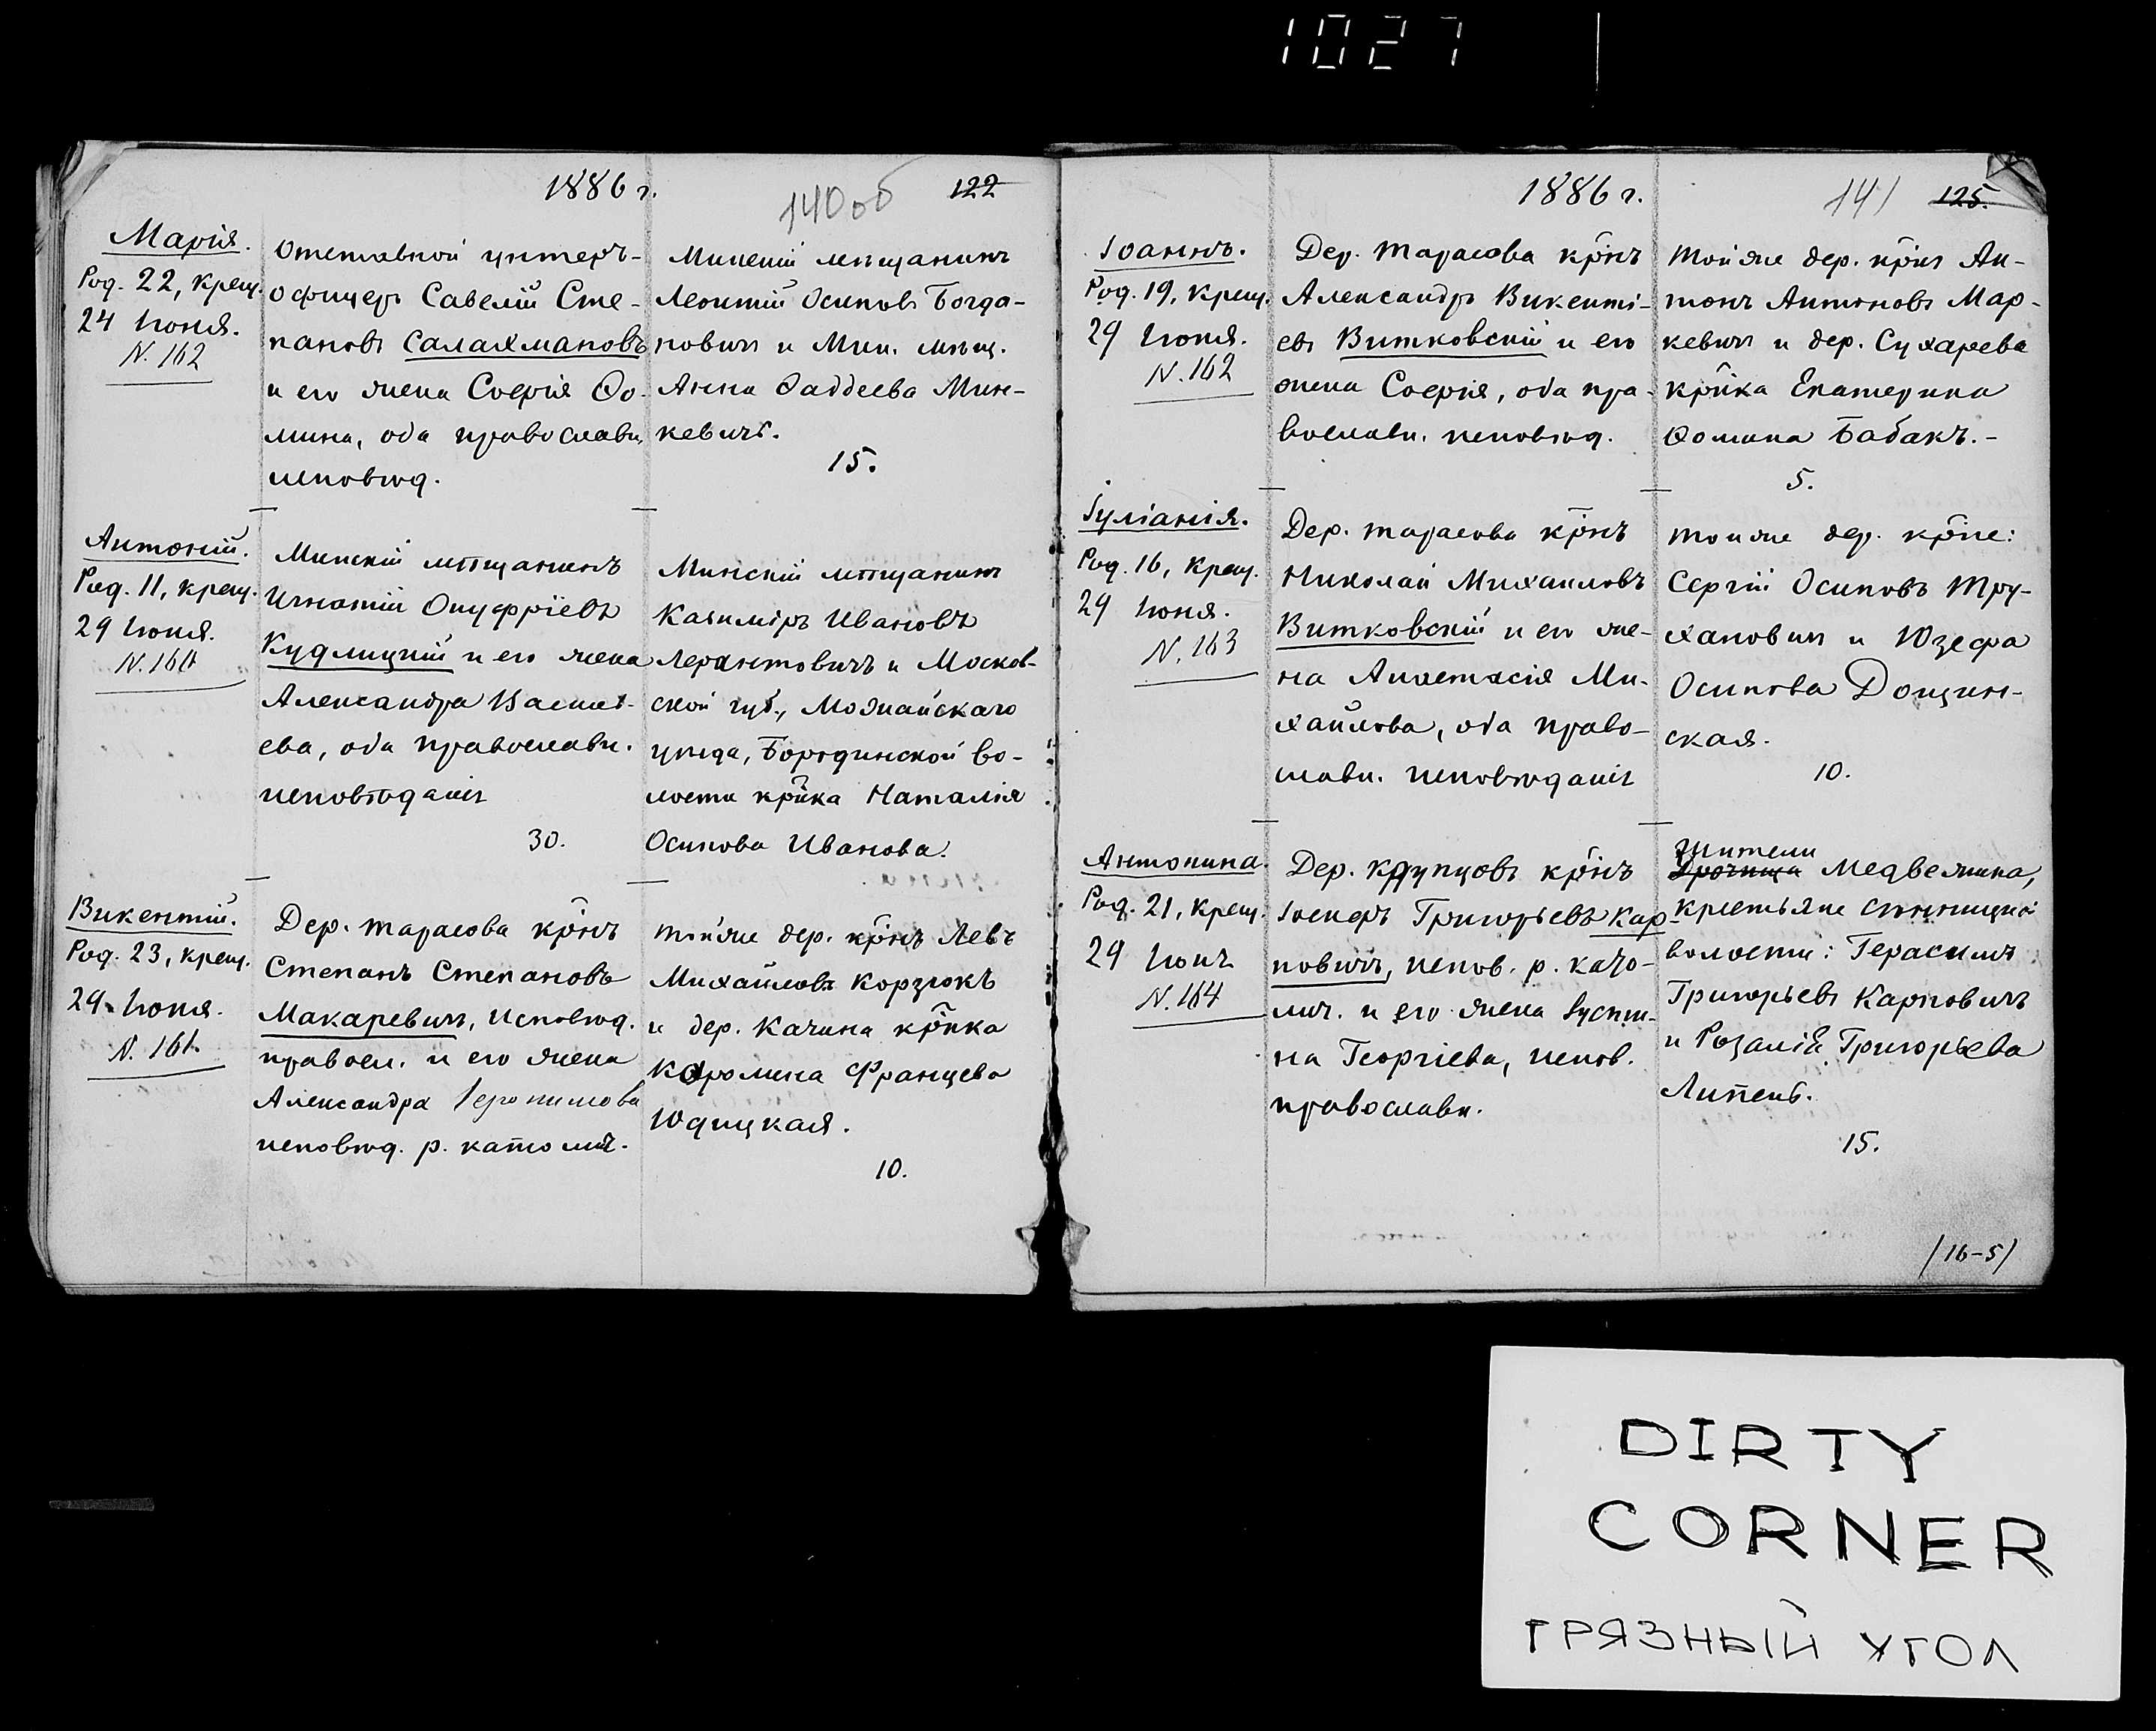 1027
1886 г.
140 об
122
Марія.
Род. 22, крещ.
24 Іюня.
N. 162
Отставной унтеръ-
офицеръ Савелій Сте-
пановъ Салахмановъ
и его жена Софія Ѳо-
мина, оба православн.
исповѣд.
Минскій мѣщанинъ
Леонтій Осиповъ Богда-
новичъ и Мин. мѣщ.
Анна Фаддеева Мин-
кевичъ.
15.
Антоній.
Род. 11, крещ.
29 Іюня.
N. 160
Минскій мѣщанинъ
Игнатій Онуфріевъ
Кудлицкій и его жена
Александра Василь-
ева, оба православн.
исповѣданія
30.
Минскій мѣщанинъ
Казиміръ Ивановъ
и Москов-
ской губ., Можайскаго
уѣзда, Бородинской во-
лости кр̃нка Наталія
Осипова Иванова.
Викентій.
Род. 23, крещ.
29 Іюня.
N. 161.
Дер. Тарасова кр̃нъ
Степанъ Степановъ
Макаревичъ, исповѣд.
правосл. и его жена
Александра Іеронимова
исповѣд. р. католич.
Той же дер. кр̃нъ Левъ
Михайловъ Корзюкъ
и дер. Качина кр̃нка
Каролина Францева
Юдицкая.
10.
1886 г.
141
125.
Іоаннъ.
Род. 19, крещ.
29 Іюня.
N. 162
Дер. Тарасова кр̃нъ
Александръ Викенті-
евъ Витковскій и его
жена Софія, оба пра-
вославн. исповѣд.
Той же дер. кр̃нъ Ан-
тонъ Антоновъ Мар-
кевичъ и дер. Сухарева
кр̃нка Екатерина
Ѳомина Бабакъ.-
5.
Іуліанія.
Род. 16, крещ.
29 Іюня.
N. 163
Дер. Тарасова кр̃нъ
Николай Михаиловъ
Витковскій и его же-
на Анастасія Ми-
хайлова, оба право-
славн. исповѣданія
Той же дер. кр̃не:
Сергій Осиповъ Тру-
хановичъ и Юзефа
Осипова Дощин-
ская.
10.
Антонина.
Род. 21, крещ.
29 Іюня
N. 164
Дер. Крупцовъ кр̃нъ
Іосифъ Григорьевъ Кар-
повичъ, испов. р. като-
лич. и его жена Іусти-
на Георгіева, испов.
православн.
Жители
Медвежина,
крестьяне Сѣнницкой
волости: Герасимъ
Григорьевъ Карповичъ
и Розалія Григорьева
Липень.
15.
/16-5/
DIRTY
CORNER
ГРЯЗНЫЙ УГОЛ